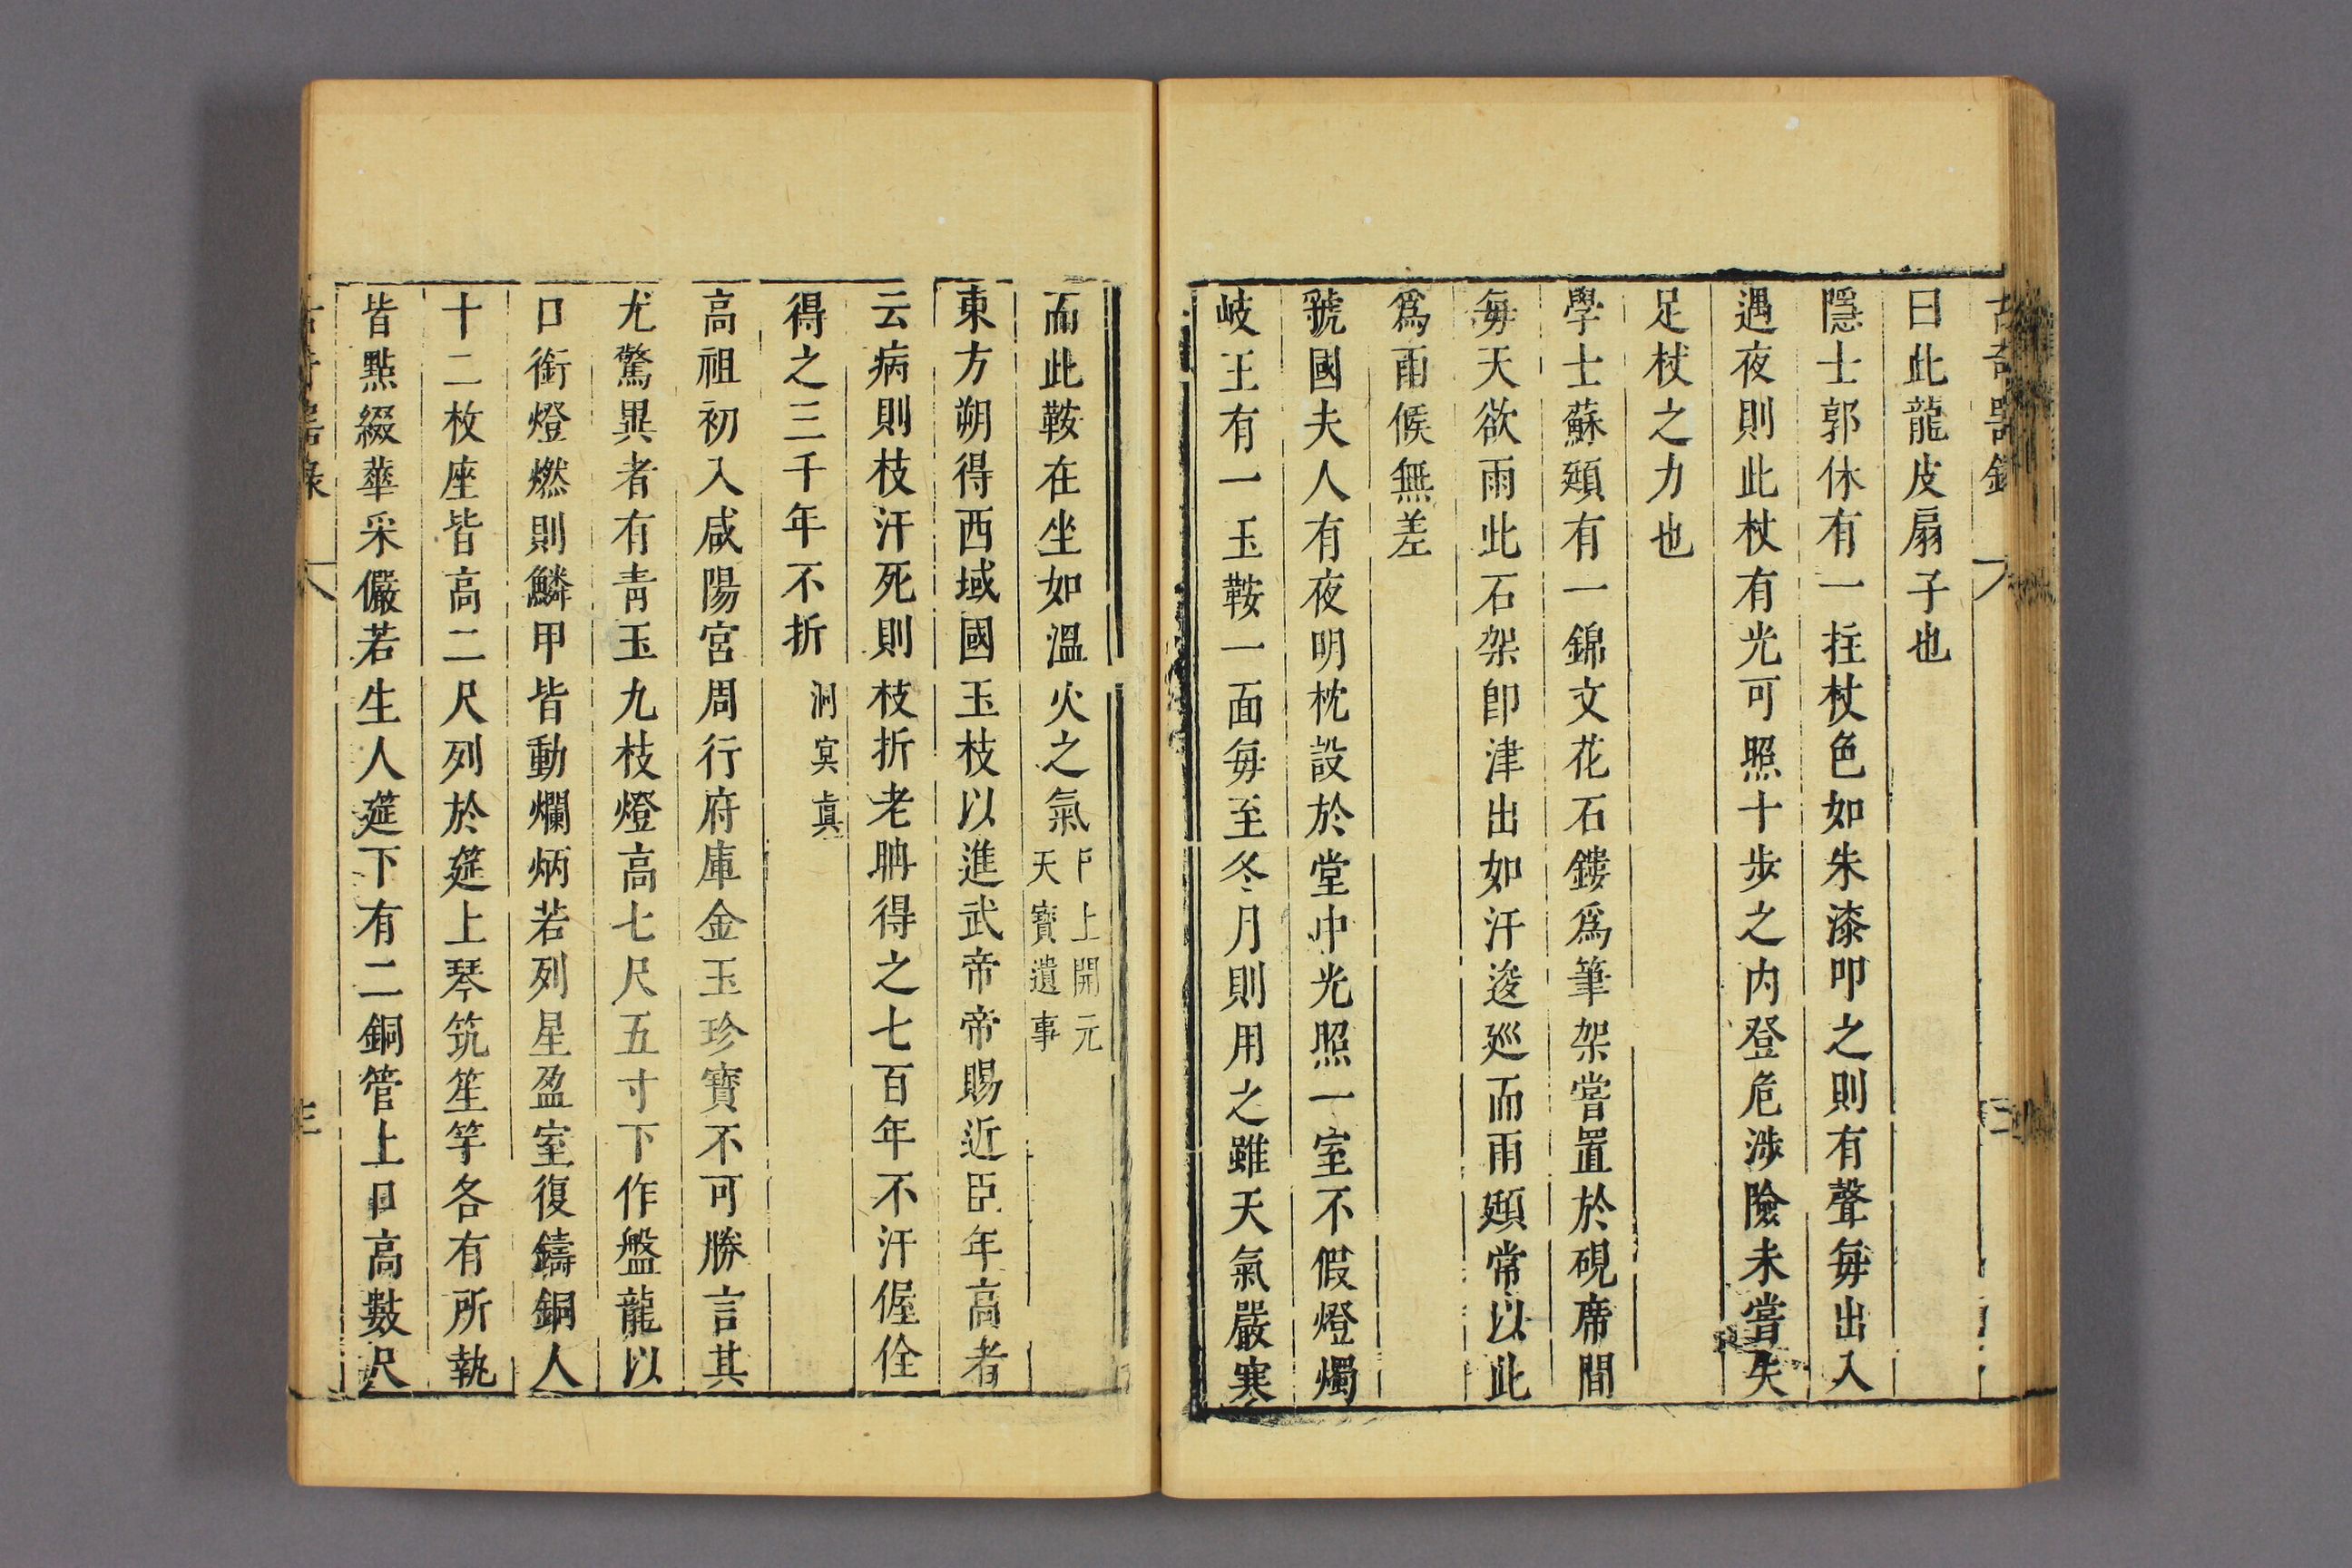 古奇器錄
曰此龍皮扇子也
隱士郭休有一拄杖色如朱漆叩之則有聲毎出入
遇夜則此杖有光可照十步之内登危涉險未嘗失
足杖之力也
學士蘇頲有一錦文花石鏤爲筆架嘗置於硯席間
毎天欲雨此石架卽津出如汗逡廵而雨頲常以此
爲雨候無差
虢國夫人有夜明枕設於堂中光照一室不假燈燭
岐王有一玉鞍一面毎至冬月則用之雖天氣嚴寒
而此鞍在坐如溫火之氣
上開元
天寶遺事
東方朔得西域國玉枝以進武帝帝賜近臣年高者
云病則枝汗死則枝折老聃得之七百年不汗偓佺
得之三千年不折 洞冥眞
高祖初入咸陽宮周行府庫金玉珍寶不可勝言其
尤驚異者有靑玉九枝燈高七尺五寸下作盤龍以
口銜燈燃則鱗甲皆動爛炳若列星盈室復鑄銅人
十二枚座皆高二尺列於筵上琴筑笙竽各有所執
皆點綴華采儼若生人筵下有二銅管上口高數尺